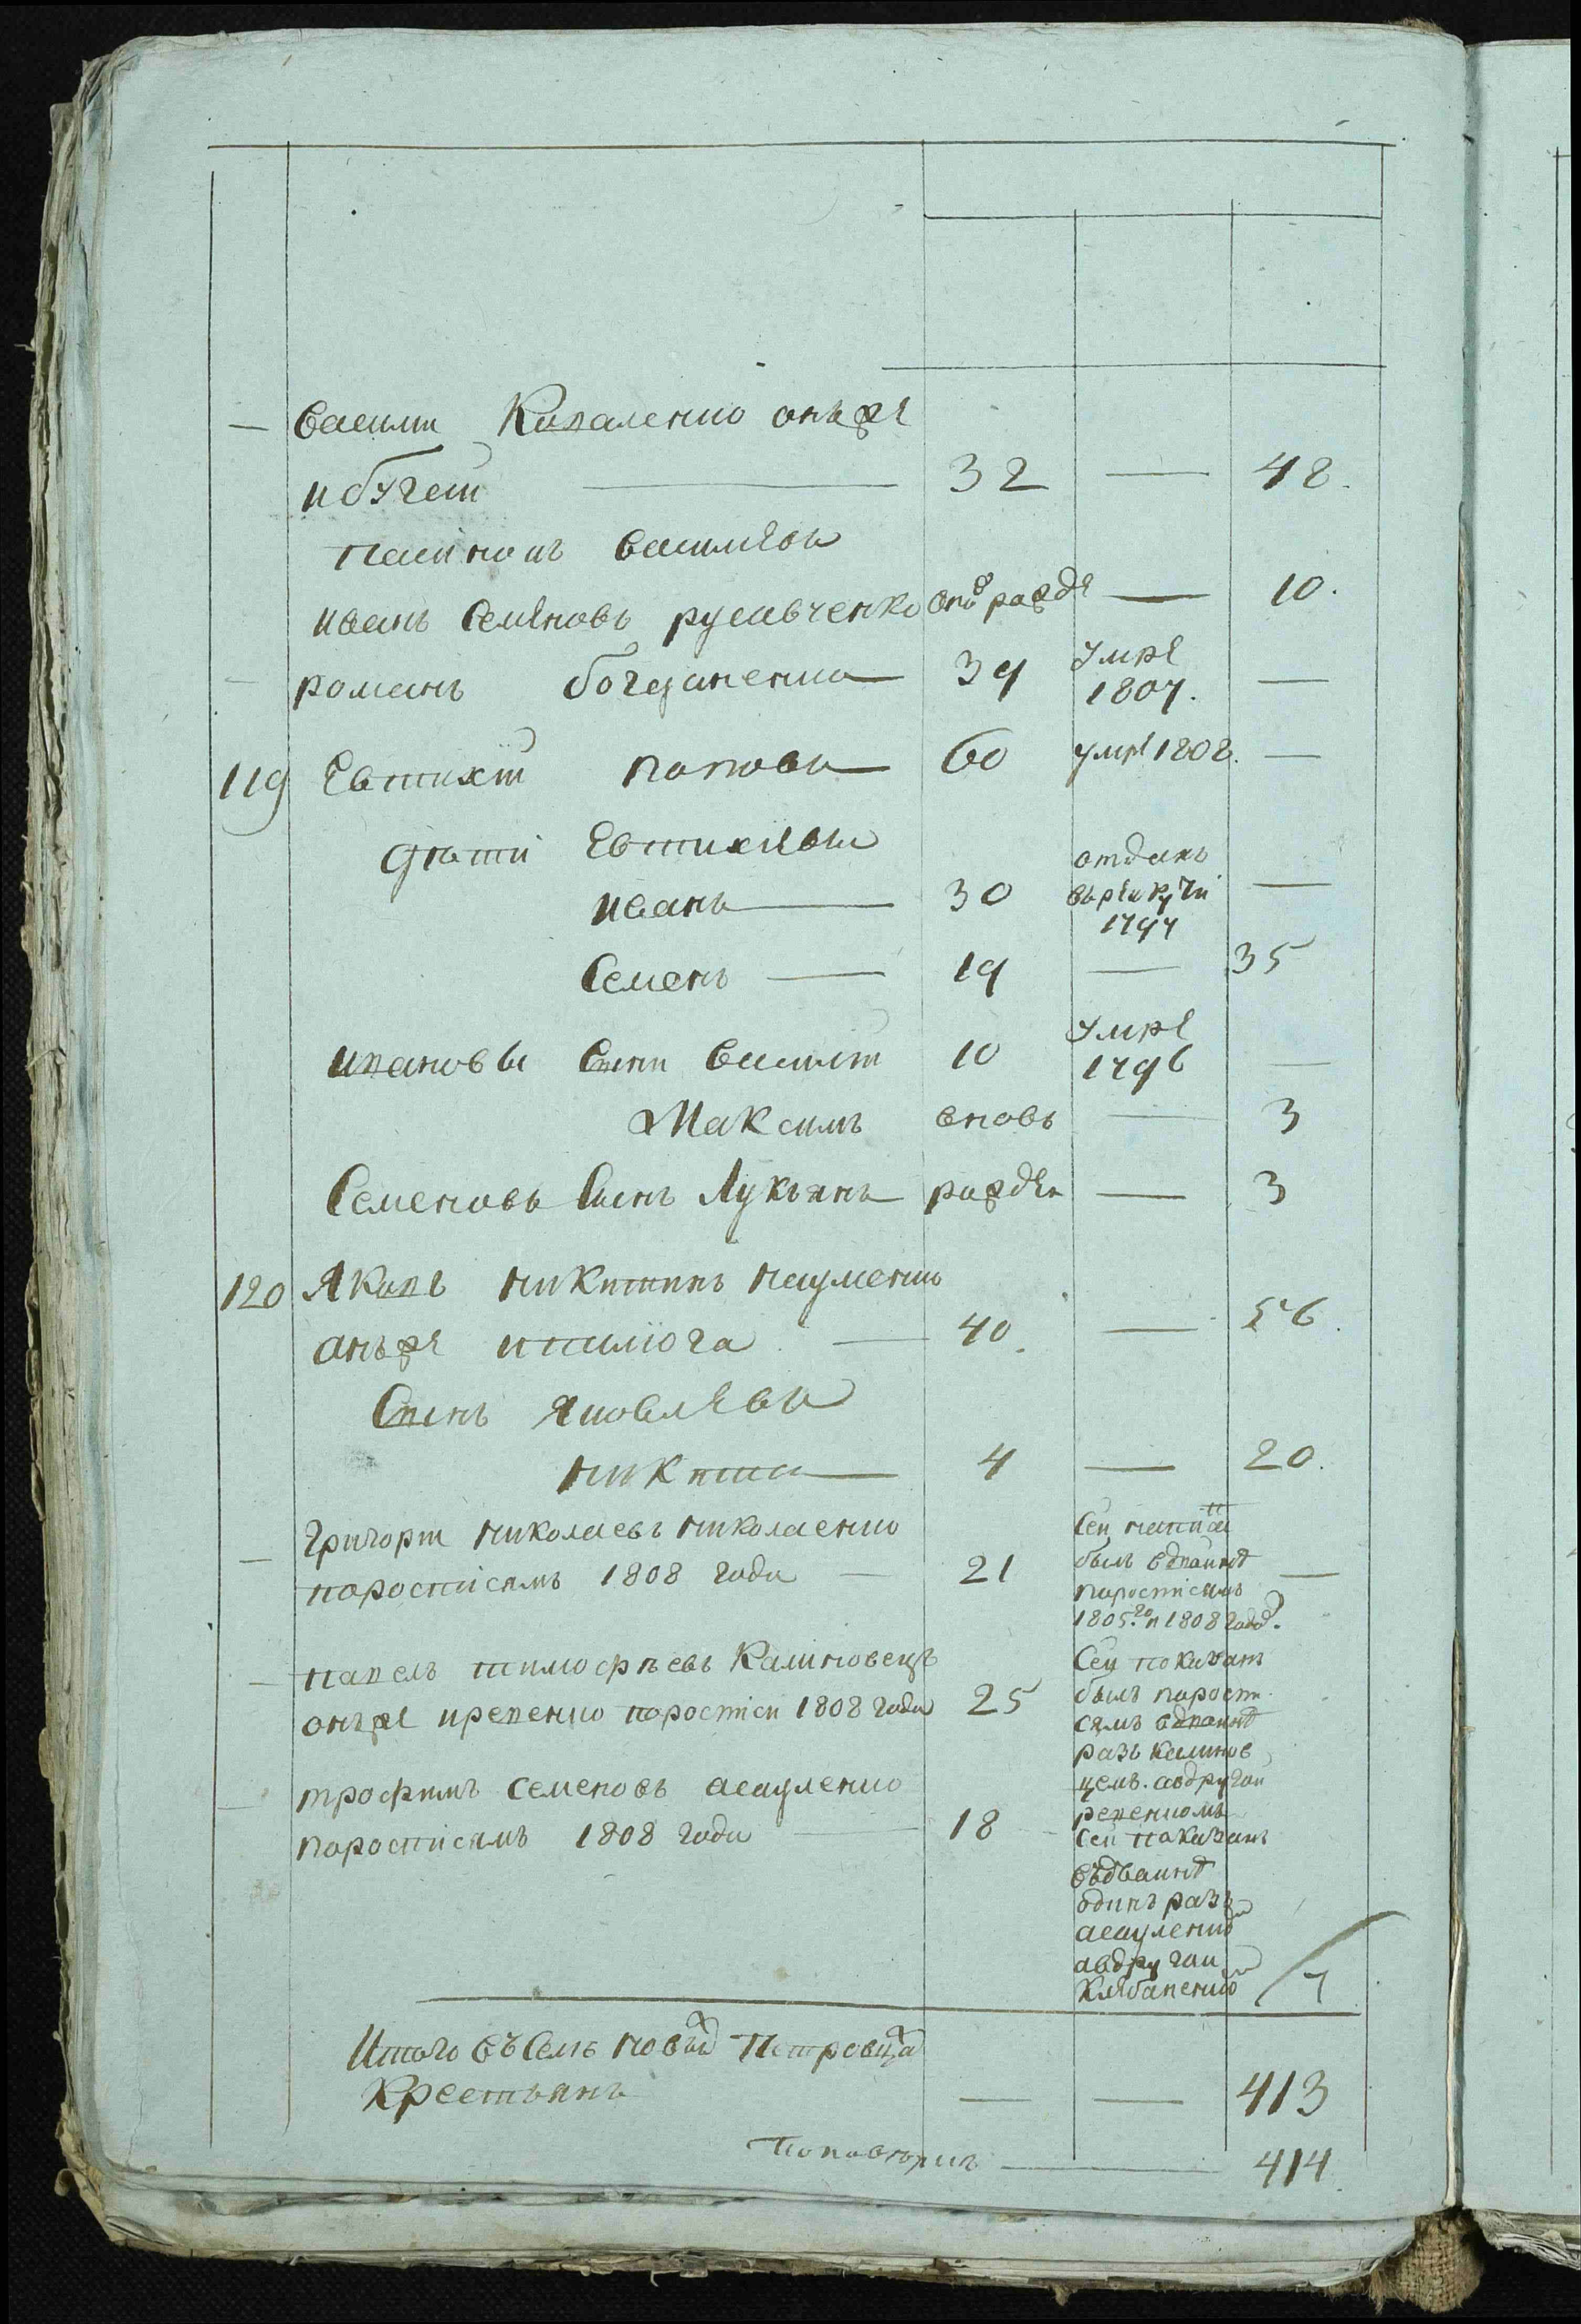 — Василии Коваленко онъже
и бугеи — 32 — 48.
пасинокъ васильевъ
иванъ Семеновъ русавченко вно рожде — 10.
— романъ богданенко — 39 умре 1807. —
119 Евтихии поповъ — 60 умре 1808. —
дети Евтихиевы
иванъ — 30 отданъ врекруты 1797 —
Семенъ — 19 — 35
ивановы Сыни Василии 10 умре 1796 —
Максимъ вновь — 3
Семеновъ Сынъ Лукьянъ рожден — 3
120 Яковъ никитинъ науменко
онъже — 40. — 56.
Сынъ Яковлевъ
никита — 4 — 20.
— Григории николаевъ николаенко
поросписямъ 1808 года — 21 —
Сеи написа
былъ вдвоине
поросписямъ
1805.го и 1808 года.
— павелъ тимофеевъ Калиновецъ
онъже ирепенко поросписи 1808 года 25
Сеи показанъ
былъ поросписямъ вдвоине
разъ калиновцемъ. авдругои
репенкомъ
— трофимъ Семеновъ асауленко
поросписямъ 1808 года — 18
Сеи показанъ
въдвоине
одинъ разъ
асауленко
авдругои
клебаненко
7
Итого въ Селе новыхъ Петровцахъ
Крестьянъ — — 413
414